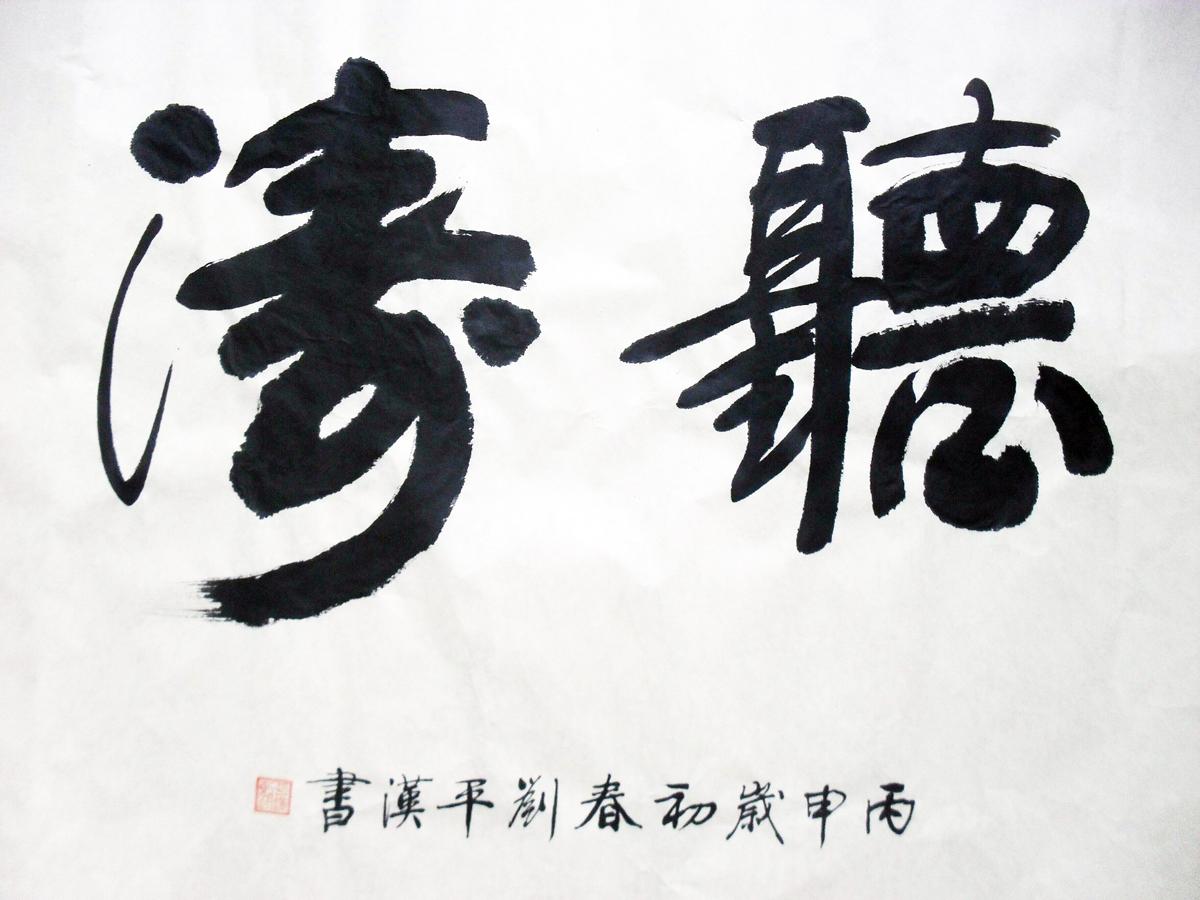 聽濤
丙申歲初春劉平漢書